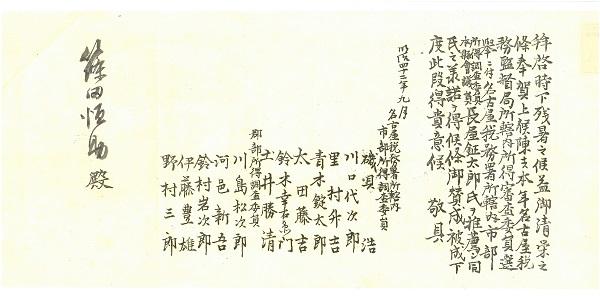 拝啓時下残暑之候益御清栄之
條奉賀上候陳者本年名古屋税
務監督局所轄内所得審査委員選
挙ニ付名古屋税務署所轄内市部
所得調査委員
本縣會議員長屋鉦太郎氏ヲ推薦シ同
民之承諾ヲ得候條御賛成被成下
度此段得貴意候 敬具
明治四十二年九月
名古屋税務署所轄内
市部所得調査委員
磯貝 浩
川口代次郎
里村升吉
青木錠太郎
太田藤吉
鈴木幸右衛門
土井勝清
郡部所得調査委員
川島松次郎
河邑新吾
鈴村岩次郎
伊藤豊雄
野村三郎
篠田恒助殿